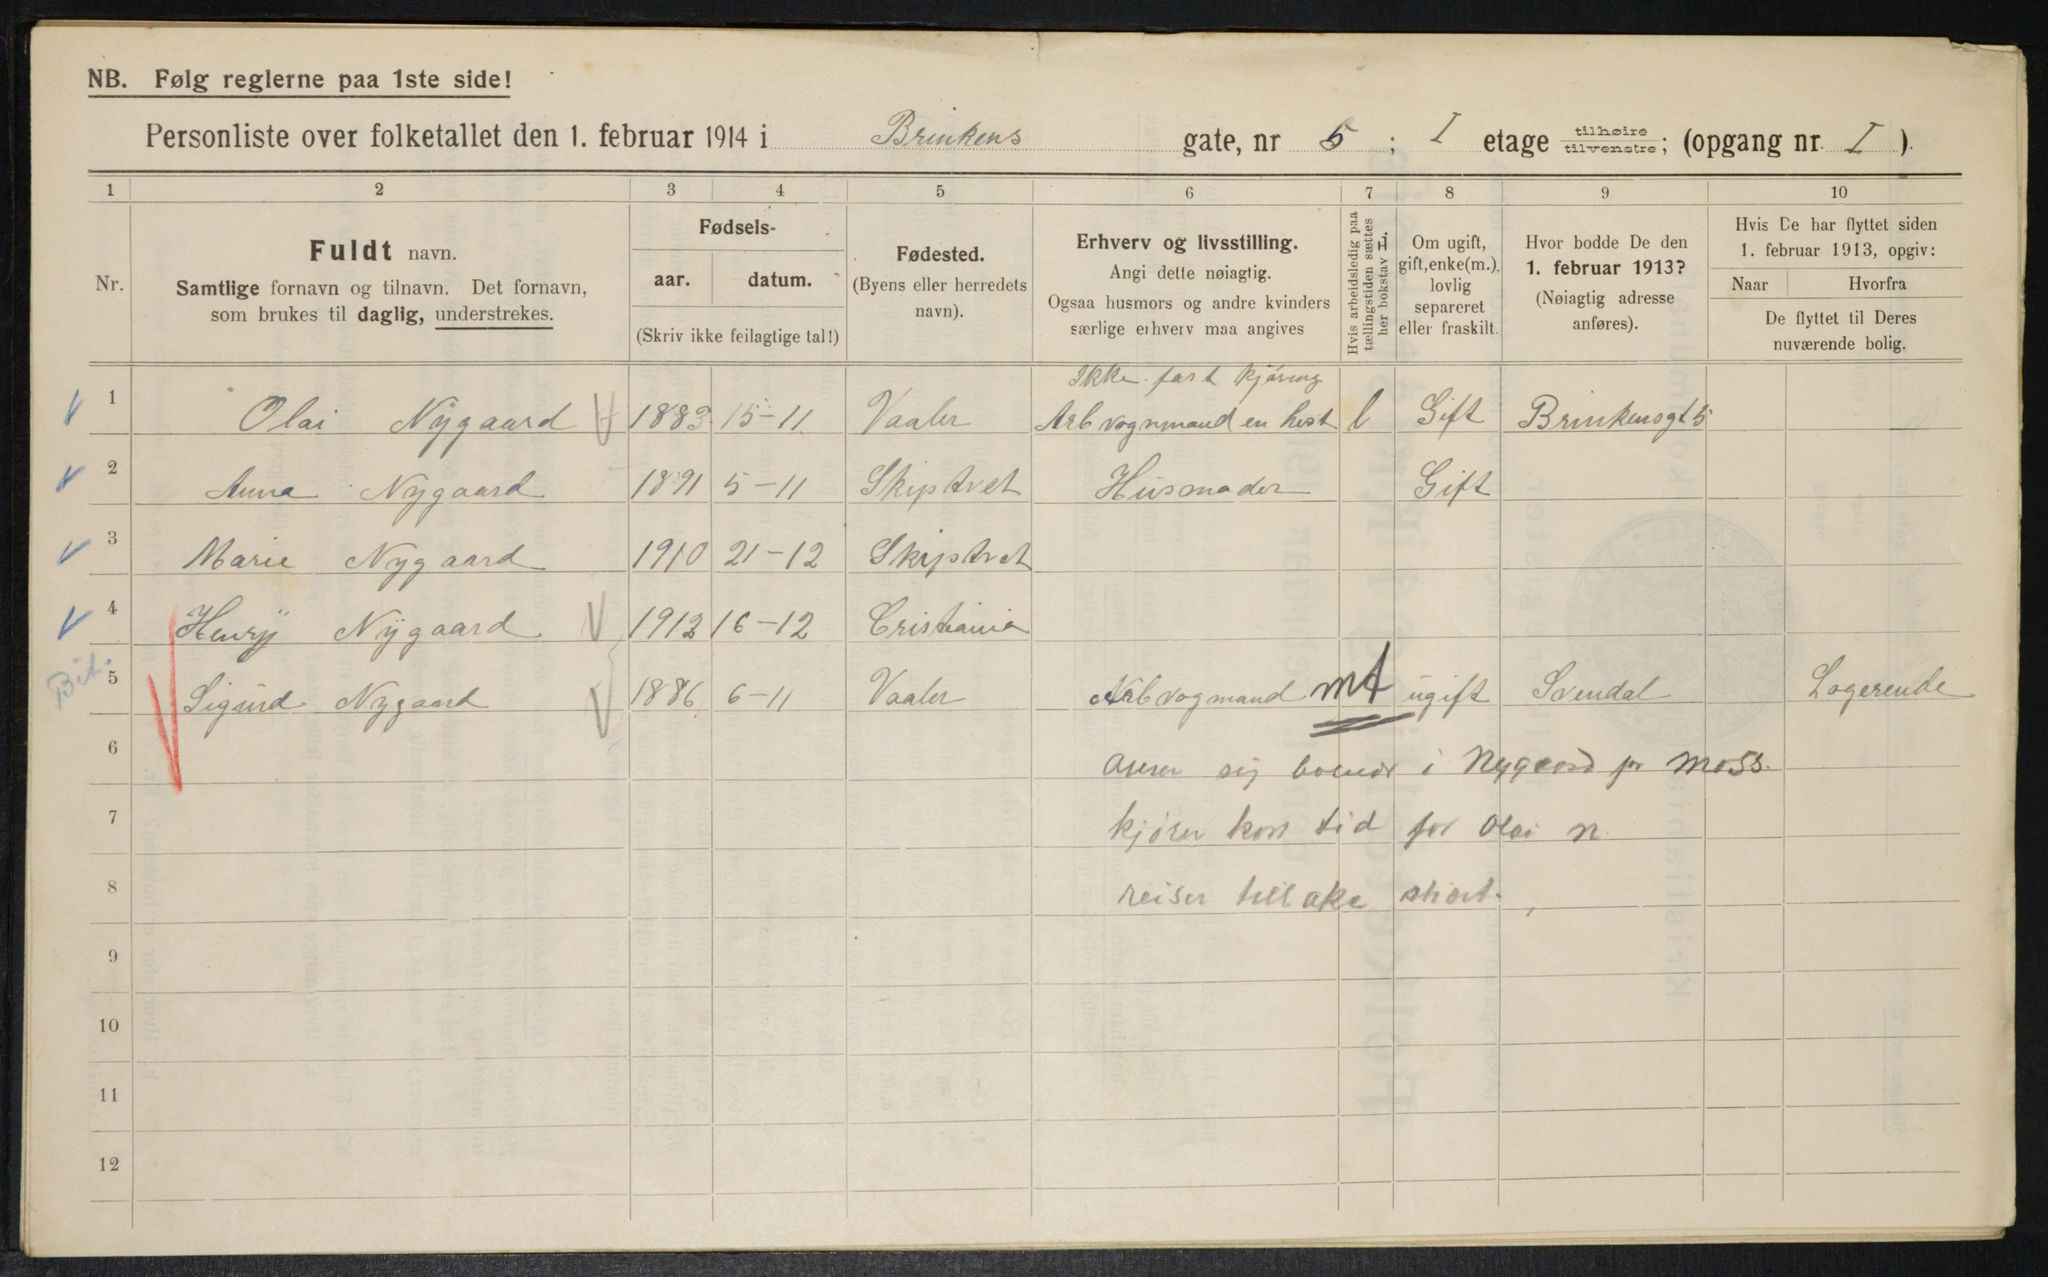 NB. Følg reglerne paa 1ste side!
Personliste over folketallet den 1. februar 1914 i Brinkens gate, nr 5; I etage tilhøire tilvenstre; (opgang nr. I).
1 2 3 4 5 6 7 8 9 10
Nr.
Fuldt navn.
Samtlige fornavn og tilnavn. Det fornavn,
som brukes til daglig, understrekes.
Fødsels-
aar. datum.
(Skriv ikke feilagtige tal!)
Fødested.
(Byens eller herredets
navn).
Erhverv og livsstilling.
Angi dette nøiagtig.
Ogsaa husmors og andre kvinders
særlige erhverv maa angives
Hvis arbeidsledig paa
tællingstiden sættes
her bokstav L.
Om ugift,
gift, enke(m.),
lovlig
separeret
eller fraskilt.
Hvor bodde De den
1. februar 1913?
(Nøiagtig adresse
anføres).
Hvis De har flyttet siden
1. februar 1913, opgiv:
Naar Hvorfra
De flyttet til Deres
nuværende bolig.
Ikke fast kjøring
1 Olai Nygaard 1883 15-11 Vaaler Arb vognmand en hest l Gift Brinkensgt 5
2 Anna Nygaard 1891 5-11 Skiptvet Husmoder Gift
3 Marie Nygaard 1910 21-12 Skiptvet
4 Henry Nygaard 1912 16-12 Cristiania
Bit. 5 Sigurd Nygaard 1886 6-11 Vaaler Arb vogmand mt ugift Svendal Logerende
6 anser sig boende i Nygaard pr Moss.
7 kjører kort tid for Olai N.
8 reiser tilbake snart.
9
10
11
12